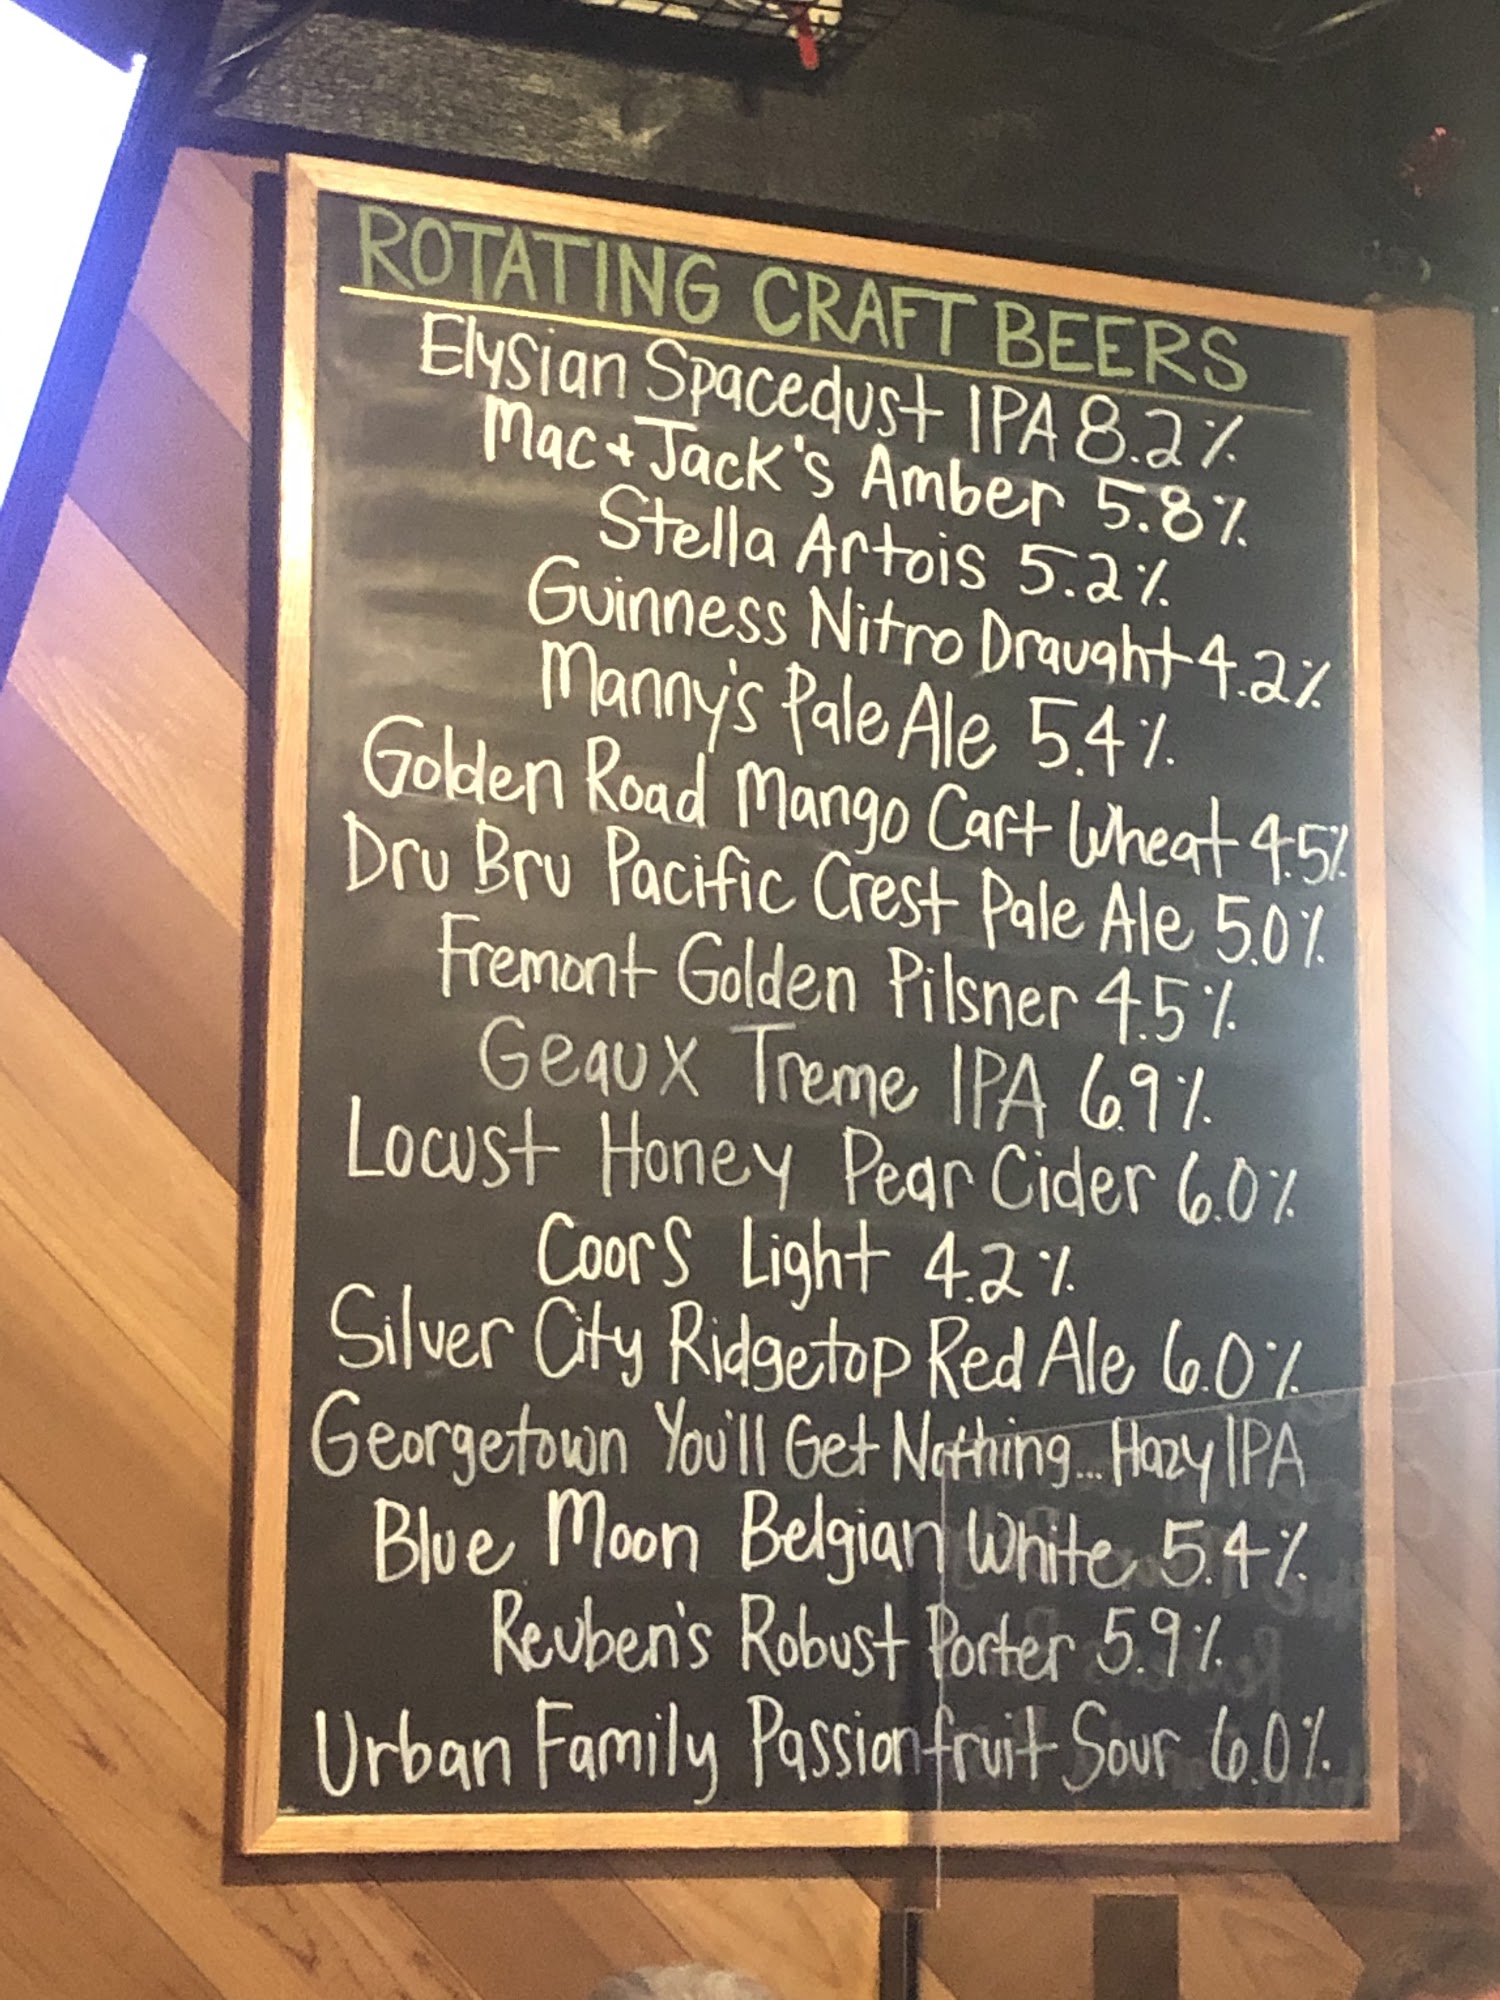 ROTATING CRAFT BEERS
Elysian Spacedust IPA 8.2%
Mac + Jack's Amber 5.8%
Stella Artois 5.2%
Guinness Nitro Draught 4.2%
Manny's Pale Ale 5.4%
Golden Road Mango Cart Wheat 4.5%
Dru Bru Pacific Crest Pale Ale 5.0%
Fremont Golden Pilsner 4.5%
Geaux Treme IPA 6.9%
Locust Honey Pear Cider 6.0%
Coors Light 4.2%
Silver City Ridgetop Red Ale 6.0%
Georgetown You'll Get Nothing... Hazy IPA
Blue Moon Belgian White 5.4%
Reuben's Robust Porter 5.9%
Urban Family Passionfruit Sour 6.0%